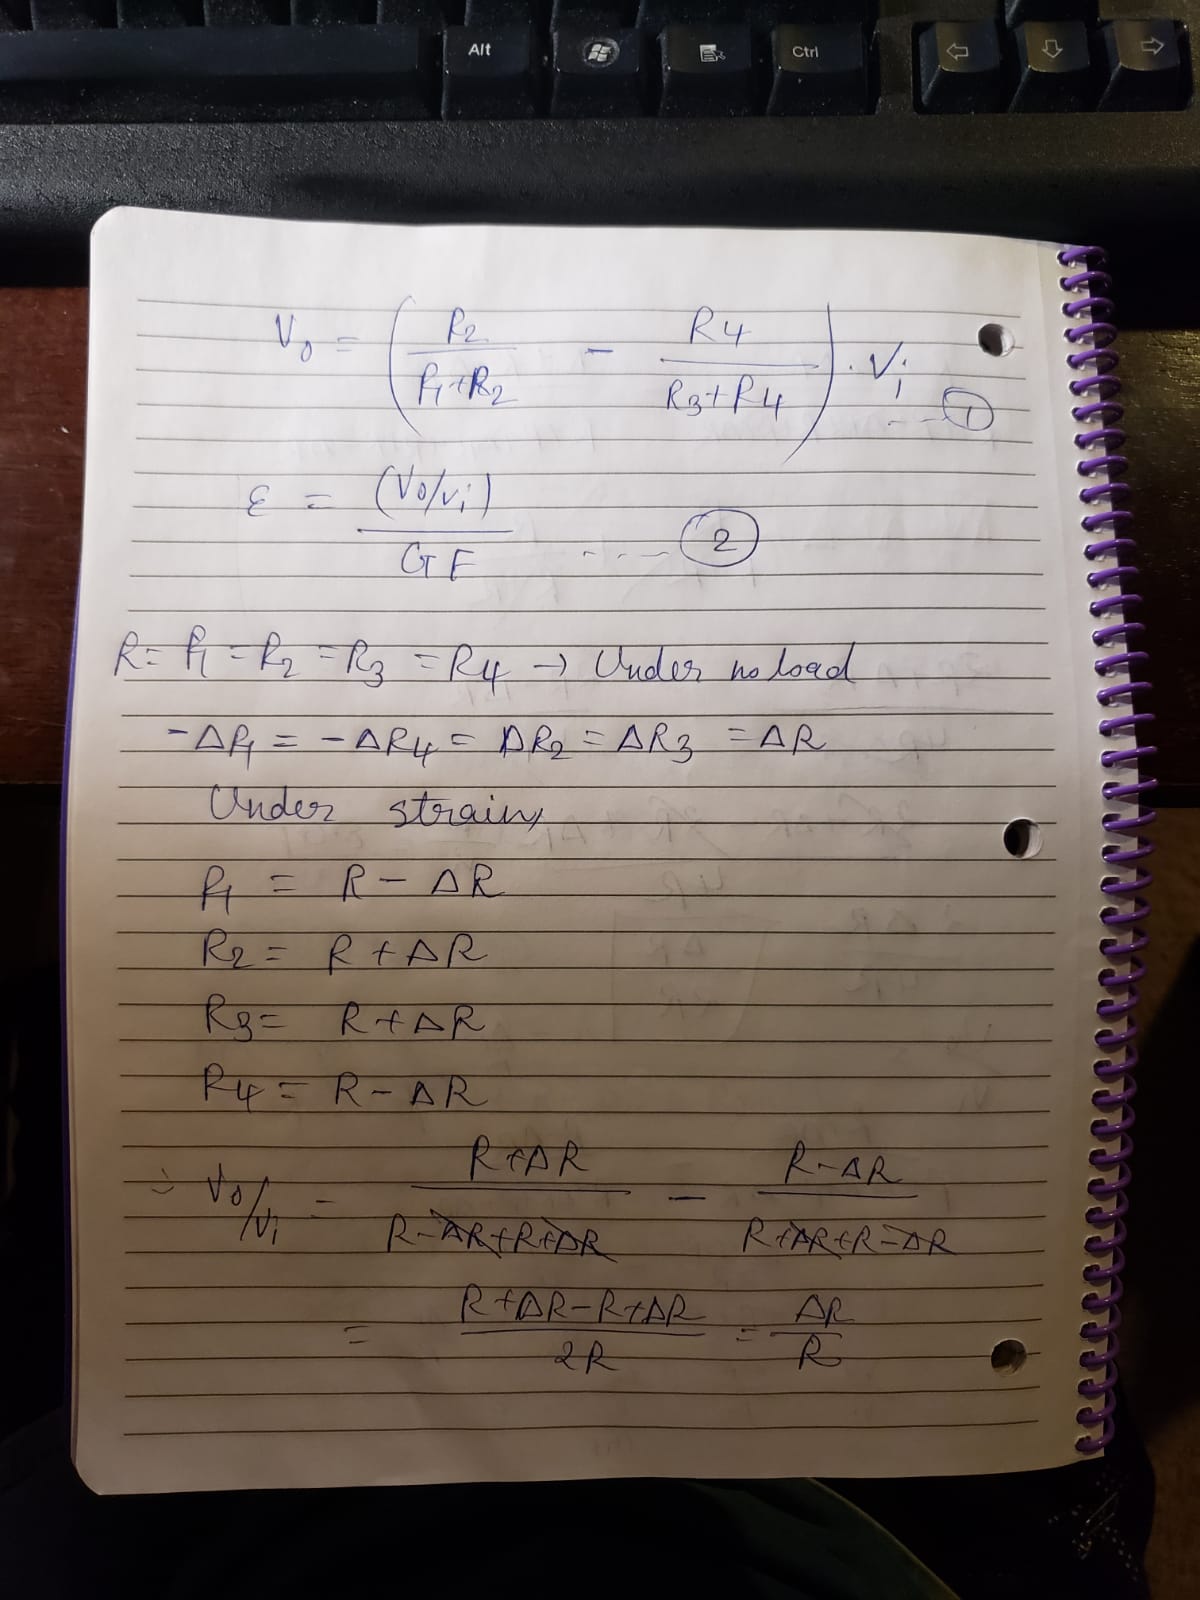 Alt Ctrl
V₀ = (R₂/(R₁+R₂) - R4/(R3+R4)) · Vᵢ ---- ①
ε = (V₀/vᵢ)/GF ---- ②
R = R₁ = R₂ = R₃ = R4 → Under no load
-ΔR₁ = -ΔR4 = ΔR₂ = ΔR3 = ΔR
Under strain,
R₁ = R - ΔR
R₂ = R + ΔR
R3 = R + ΔR
R4 = R - ΔR
∴ V₀/Vᵢ = (R+ΔR)/(R-ΔR+R+ΔR) - (R-ΔR)/(R+ΔR+R-ΔR)
= (R+ΔR-R+ΔR)/2R = ΔR/R